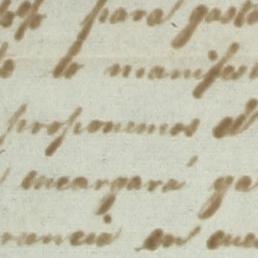 para gasto
lo manifes
proponemos el
encargará ga
rancia en cua